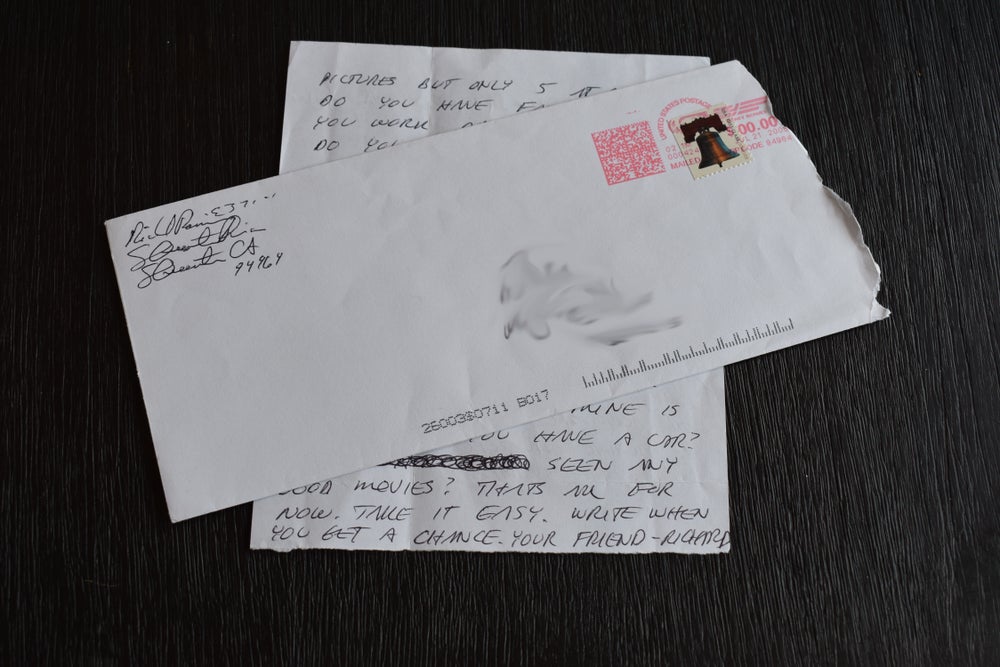 PICTURES BUT ONLY 5
DO YOU HAVE
YOU WORK
DO YOU
UNITED STATES POSTAGE
00.00
MAILED
CODE 94964
San Quentin CA
94964
28003$0711 B017
MINE IS
YOU HAVE A CAR?
SEEN ANY
GOOD MOVIES? THATS ALL FOR
NOW. TAKE IT EASY. WRITE WHEN
YOU GET A CHANCE. YOUR FRIEND-RICHARD